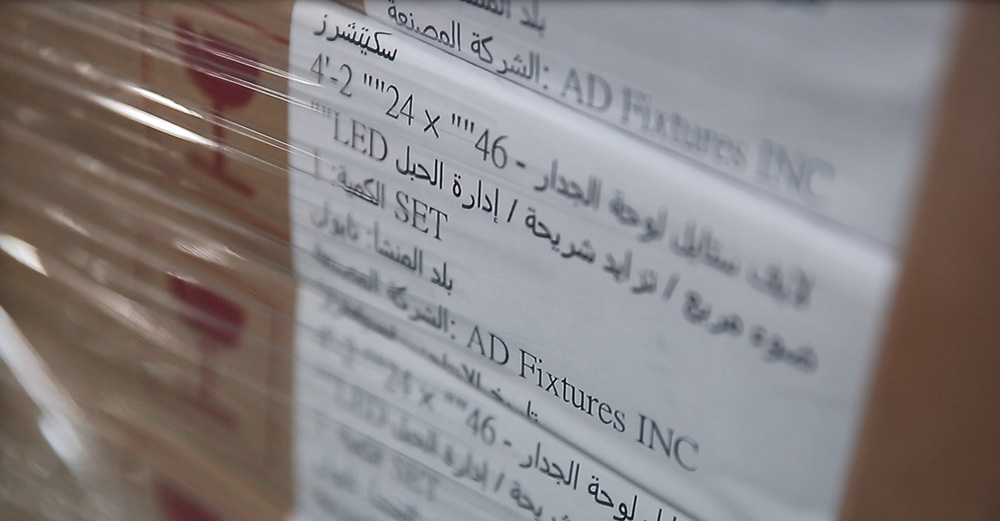 بلد
الشركة المصنعة: AD Fixtures INC
سكيتشرز
لايف ستايل لوحة الجدار - 46"" x 24"" 4'-2
ضوء مربع / تزايد شريحة / إدارة الحبل LED""
الكمية: 1 SET
بلد المنشأ: تايوان
الشركة المصنعة: AD Fixtures INC
لوحة الجدار - 46"" x 24""
شريحة / إدارة الحبل LED
SET